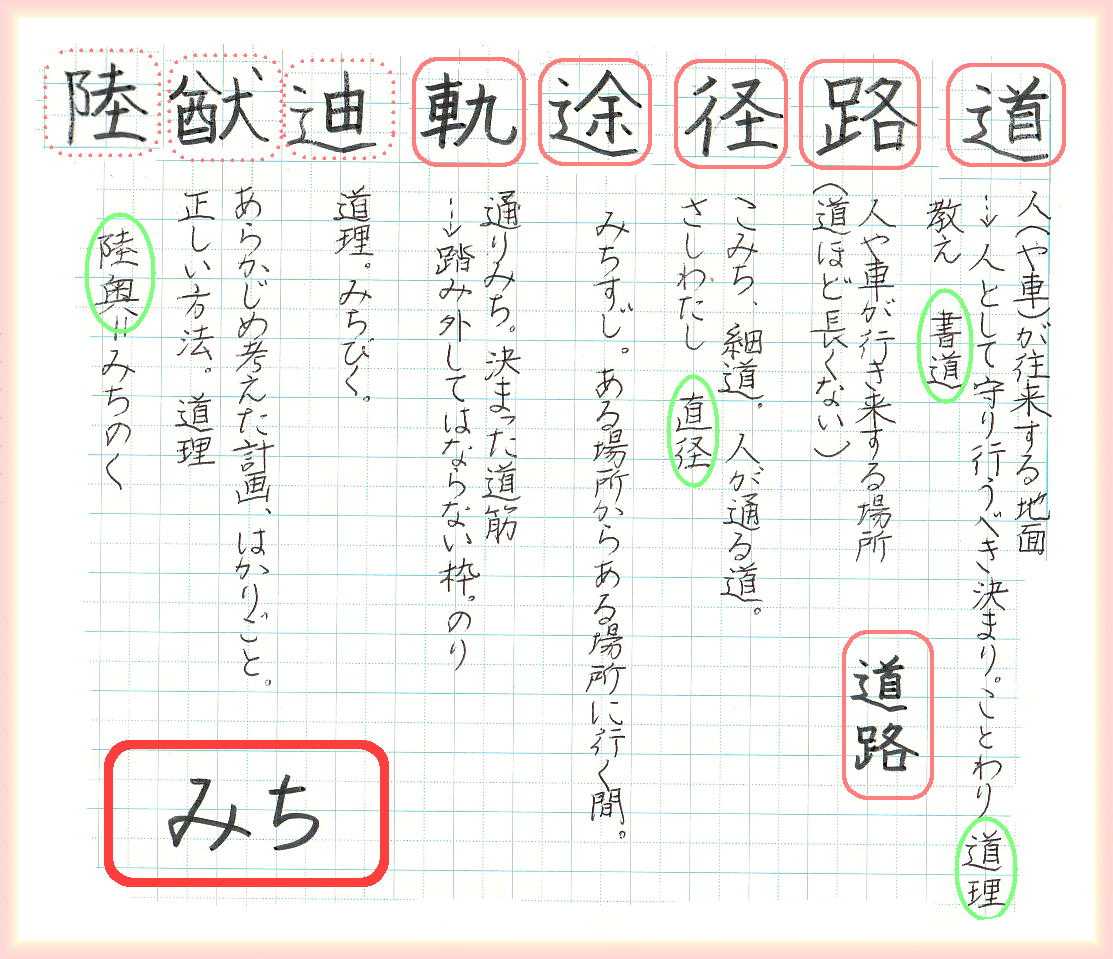 道
人(や車)が往来する地面
→人として守り行うべき決まり。ことわり 道理
教え 書道
路
人や車が行き来する場所
(道ほど長くない)
道路
径
こみち、細道。人が通る道。
さしわたし 直径
途
みちすじ。ある場所からある場所に行く間。
軌
通りみち。決まった道筋
→踏み外してはならない枠。のり
迪
道理。みちびく。
猷
あらかじめ考えた計画、はかりごと。
正しい方法。道理
陸
陸奥=みちのく
みち